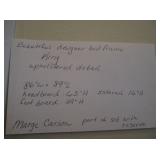 Beautiful designer bed frame
King
upholstered detail
86"w x 89"L
headboard 65"H extends 16"D
foot board 39"H
Marge Carson part of set with